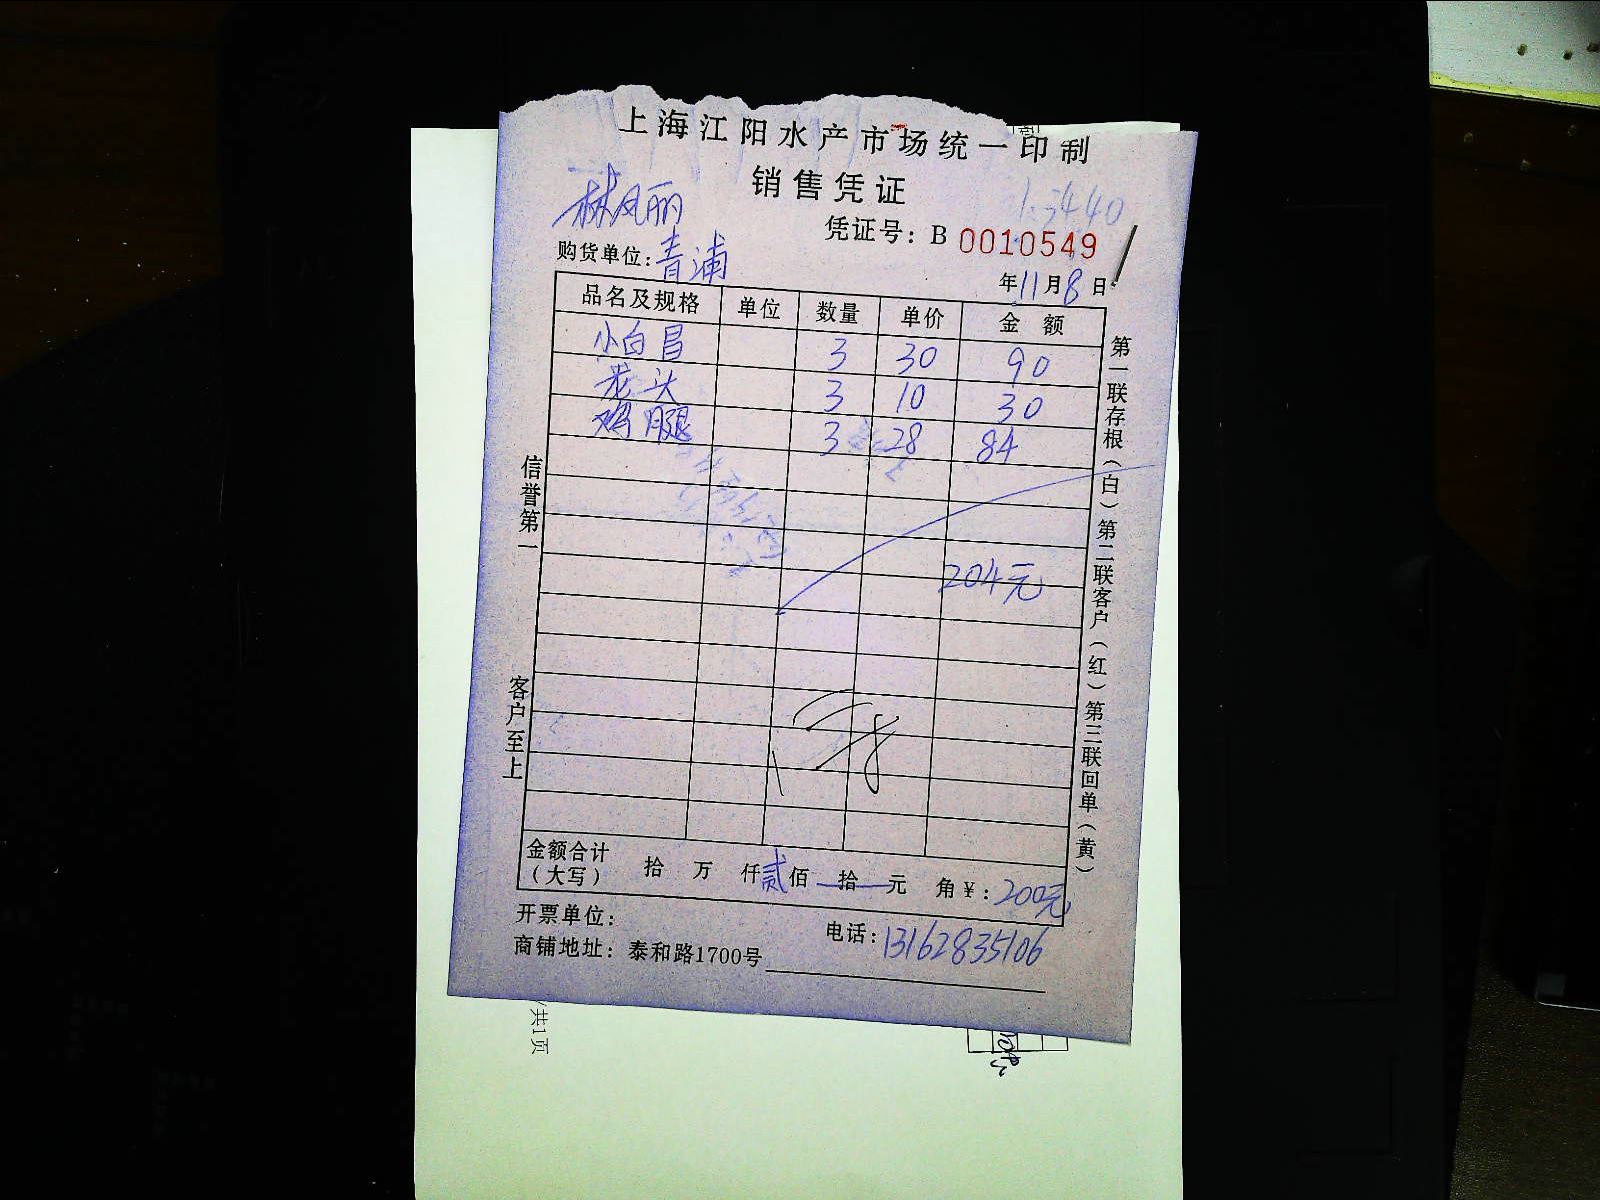 上海江阳水产市场统一印制
销售凭证
林凤丽
凭证号：B 0010549
购货单位：青浦
年11月8日
品名及规格 单位 数量 单价 金额
小白昌 3 30 90
老头 3 10 30
鸡腿 3 28 84
204元
信誉第一
客户至上
第一联存根（白）第二联客户（红）第三联回单（黄）
金额合计（大写） 拾 万 仟贰佰 拾 元 角￥：200元
开票单位：
电话：13162835106
商铺地址：泰和路1700号
/共1页